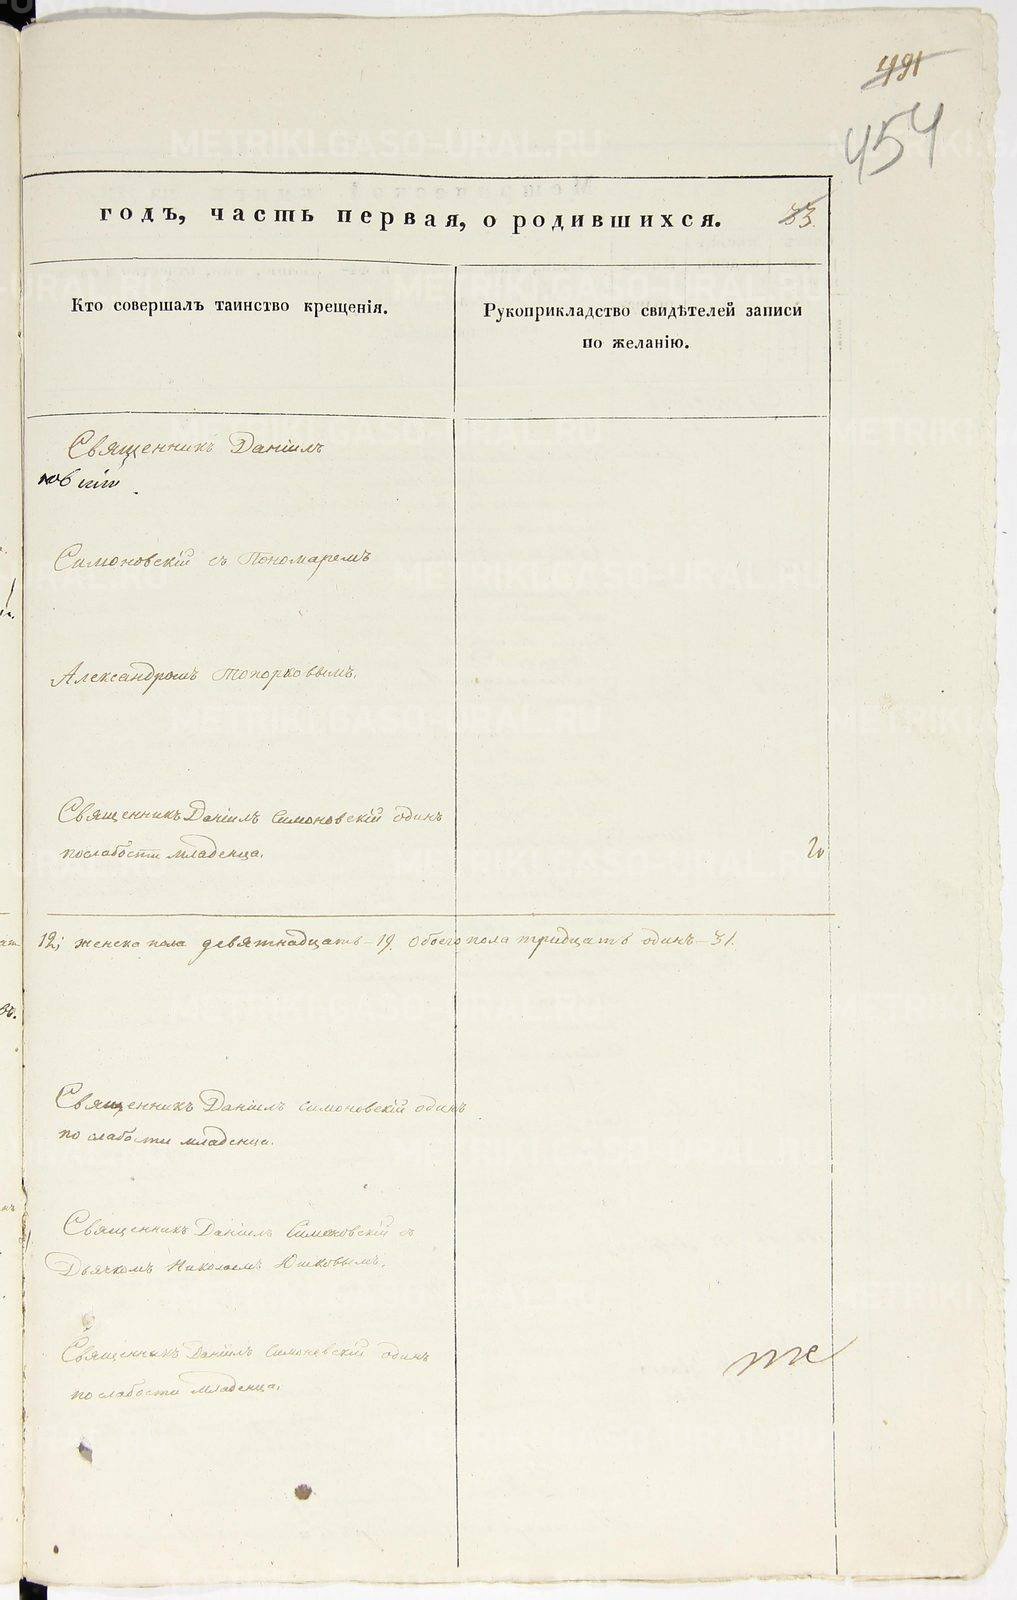 491
454
годъ, часть первая, о родившихся.
33.
Кто совершалъ таинство крещенія.
Рукоприкладство свидѣтелей записи
по желанію.
Священникъ Даніилъ
Симоновскій съ Пономаремъ
Александромъ Топорковымъ.
Священникъ Даніилъ Симоновскій одинъ
по слабости младенца.
12; женска пола девятнадцать - 19. обоего пола тридцать одинъ - 31.
Священникъ Даніилъ Симоновскій одинъ
по слабости младенца.
Священникъ Даніилъ Симоновскій съ
Дьячкомъ Николаемъ Юшковымъ.
Священникъ Даніилъ Симоновскій одинъ
по слабости младенца.
METRIKI.GASO-URAL.RU